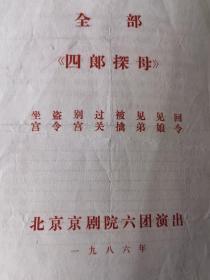 全部
《四郎探母》
坐宫 盗令 别宫 过关 被擒 见弟 见娘 回令
北京京剧院六团演出
一九八六年